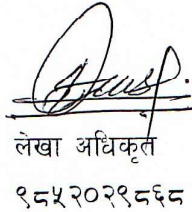 लेखा अधिकृत
९८५२०२९८६८